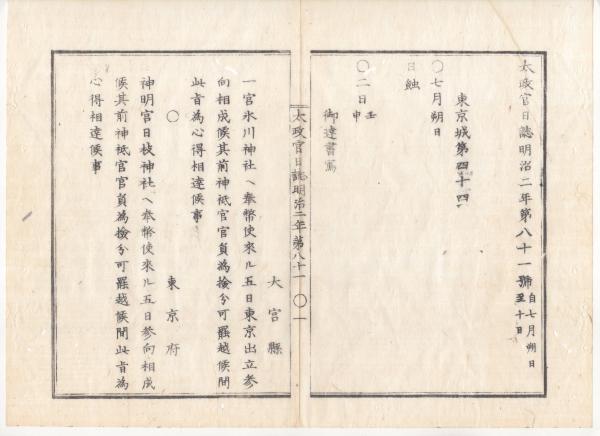 太政官日誌明治二年第八十一號 自七月朔日至十日
東京城第四十四
〇七月朔日
日蝕
〇二日 壬申
御達書寫
太政官日誌明治二年第八十一 〇一
大宮縣
一宮氷川神社ヘ奉幣使來ル五日東京出立參
向相成候其前神祇官官員為撿分可罷越候間
此旨為心得相達候事
〇
東京府
神明宮日枝神社ヘ奉幣使來ル五日參向相成
候其前神祇官官員為撿分可罷越候間此旨為
心得相達候事